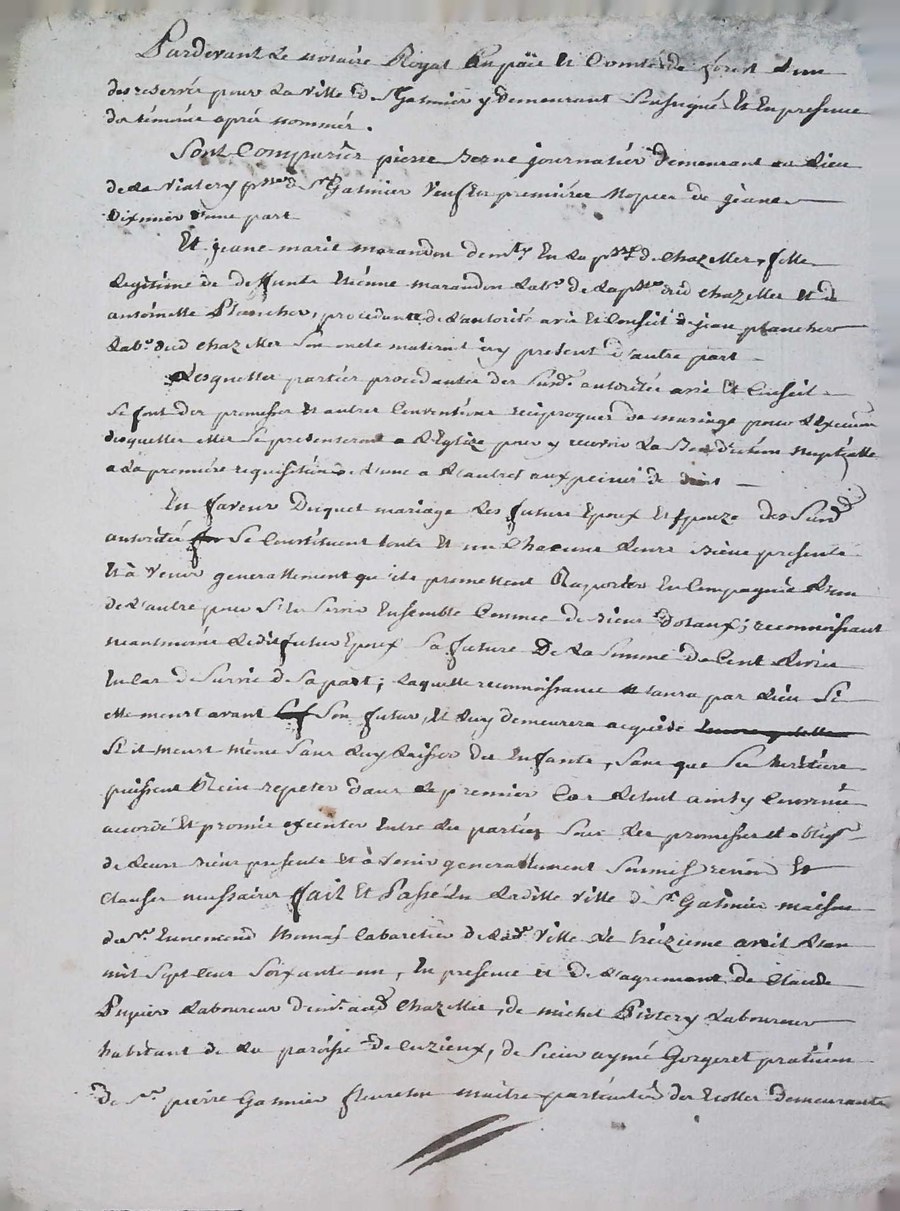 Pardevant Le notaire Royal En païs Et Comté de forest L'un
des reservés pour La Ville de St Galmier y demeurant Soussigné Et En presence
des témoins aprés nommés.
Sont Comparus pierre journalier demeurant au Lieu
de La Vialery psse de St Galmier Veuf En premieres Nopces de jeane
d'une part
Et jeane marie marandon demt En La psse de chazelles, fille
Legitime de deffunts Etienne marandon Labr de La psse dud chazelles Et de
antoinette Plancher, procedante de L'autorité avis Et Conseil de jean plancher
Labr dud chazelles Son oncle maternel icy present d'autre part
Lesquelles parties procedantes des Susd autorités avis Et Conseil
Se font des promesses Et autres Conventions reciproques de mariage pour L'Execution
desquelles elles Se presenteront a L'Eglize pour y recevoir La Benediction Nuptialle
a La premiere requisition L'une a L'autre aux peines de droit
En faveur Duquel mariage Les futurs Epoux Et Epouze des Susd
autorités Se Constituent touts Et un Chacuns Leurs Biens presents
Et à Venir generallement qu'ils promettent Raporter En Compagnie L'un
de L'autre pour S'En Servir Ensemble Comme de Biens Dotaux; reconnoissant
neantmoins Ledit futur Epoux Sa future De La Somme de Cent Livres
En Cas de Survie de Sa part; Laquelle reconnoissance n'aura pas Lieu Si
elle meurt avant Son futur, Et Luy demeurera acquise
Si il meurt même Sans Luy Laisser des Enfants, Sans que Ses heritiers
puissent Rien repeter dans Le premier Cas Letout ainsy Convenu
accordé Et promis executer Entre Les parties Sous Les promesses et oblig
de Leurs Biens presents Et à Venir generallement Soumis renon Et
Clauses necessaires fait Et Passé En Laditte Ville de St Galmier maison
du Sr Ennemond thomas Cabaretier de Lade Ville Le treizieme avril L'an
mil Sept Cent Soixante un, En presence et de L'agrement de Claude
Pupier Laboureur demt aud Chazelles, de michel Laboureur
habitant de La paroisse de Cuzieux, de Sieur aymé Gorgeret praticien
de Sr pierre Galmier fleureton maitre particulier des Ecolles demeurants